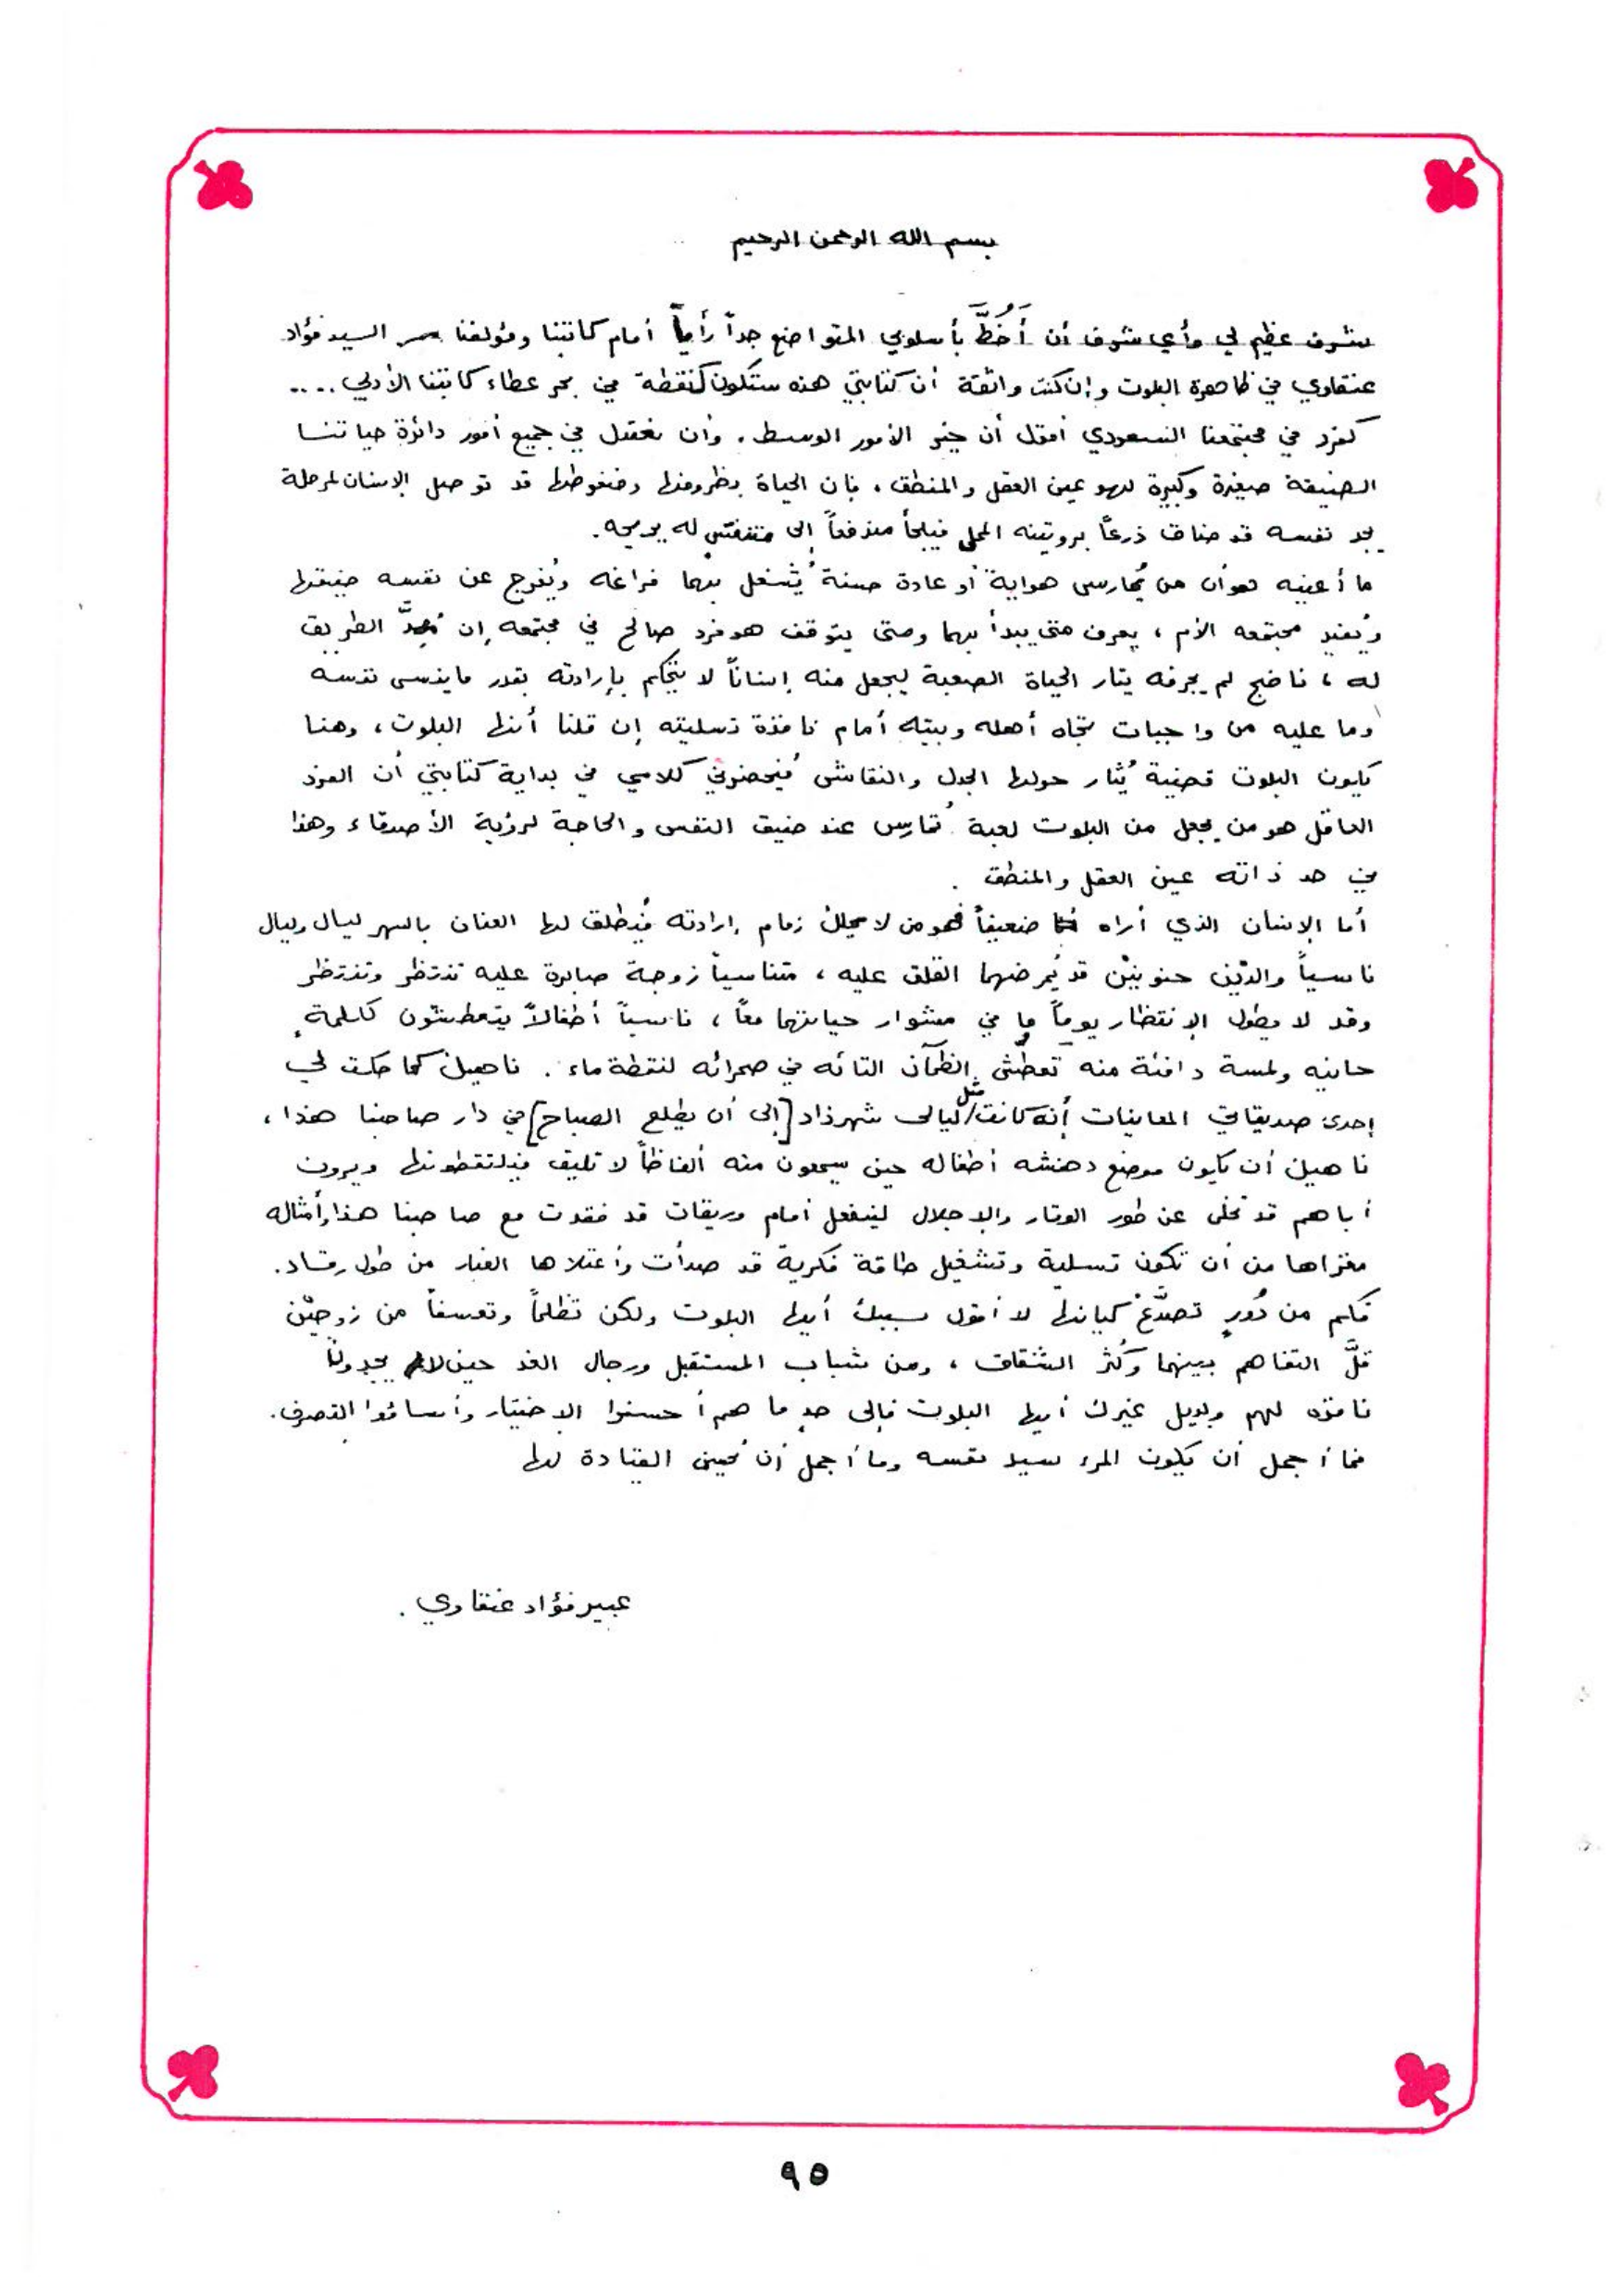 بسم الله الرحمن الرحيم
شرف عظيم لي وأي شرف أن أَخُطَّ بأسلوبي المتواضع جداً رأياً أمام كاتبنا ومؤلفنا السيد فؤاد
عنقاوي في ظاهرة البلوت وإن كنت واثقة أن كتابتي هذه ستكون كنقطة في بحر عطاء كاتبنا الأدبي ....
كفرد في مجتمعنا السعودي أقول أن خير الأمور الوسط . وأن نعقل في جميع أمور دائرة حياتنا
الضيقة صغيرة وكبيرة لهو عين العقل والمنطق ، فإن الحياة بظروفها وضغوطها قد توصل الإنسان لمرحلة
يجد نفسه قد ضاق ذرعاً بروتينه الممل فيلجأ مندفعاً إلى متنفس له يريحه .
ما أعنيه هو أن من يُمارس هواية أو عادة حسنة يُشغل بهما فراغه ويُفرج عن نفسه ضيقها
ويُفيد مجتمعه الأم ، يعرف متى يبدأ بهما ومتى يتوقف هو فرد صالح في مجتمعه إن الطريق
له ، ناضج لم يجرفه تيار الحياة الصعبة ليجعل منه إنساناً لا يتحكم بإرادته بقدر ما ينسى نفسه
وما عليه من واجبات تجاه أهله وبيته أمام نافذة تسليته إن قلنا أنها البلوت ، وهنا
يكون البلوت قضية يُثار حولها الجدل والنقاش فيحضرني كلامي في بداية كتابتي أن الفرد
العاقل هو من يجعل من البلوت لعبة تُمارس عند ضيق النفس والحاجة لرؤية الأصدقاء وهذا
في حد ذاته عين العقل والمنطق .
أما الإنسان الذي أراه ضعيفاً فهو من لا يملك زمام إرادته فيُطلق لها العنان بالسهر ليال وليال
ناسياً والدَيْن حنونيْن قد يُمرضهما القلق عليه ، متناسياً زوجة صابرة عليه تنتظر وتنتظر
وقد لا يطول الإنتظار يوماً ما في مشوار حياتهما معاً ، ناسياً أطفالاً يتعطشون كلمةٍ
حانيه ولمسة دافئة منه تعطش الظمآن التائه في صحرائه لنقطة ماء . ناهيك كما حكت لي
إحدى صديقاتي المعانيات أنه كانت مثل ليالى شهرزاد [إلى أن يطلع الصباح] في دار صاحبنا هذا ،
ناهيك أن يكون موضع دهشه أطفاله حين يسمعون منه ألفاظاً لا تليق فيلتقطونها ويرون
أباهم قد تخلى عن طور الوقار والإجلال لينفعل أمام وريقات قد فقدت مع صاحبنا هذا وأمثاله
مغزاها من أن تكون تسلية وتشغيل طاقة فكرية قد صدأت وأعتلاها الغبار من طول رقاد .
فكم من دُورٍ تصدَّع كيانها لا أقول بسببك أيها البلوت ولكن تظلماً وتعسفاً من زوجيْن
قلَّ التفاهم بينهما وكَثُر الشقاق ، ومن شباب المستقبل ورجال الغد حين لا يجدون
نافذه لهم وبديل غيرك أيها البلوت فإلى حدٍ ما هم أحسنوا الاختيار وأساءوا التصرف .
فما أجمل أن يكون المرء سيد نفسه وما أجمل أن يُحسن القيادة لها
عبير فؤاد عنقاوي .
٩٥